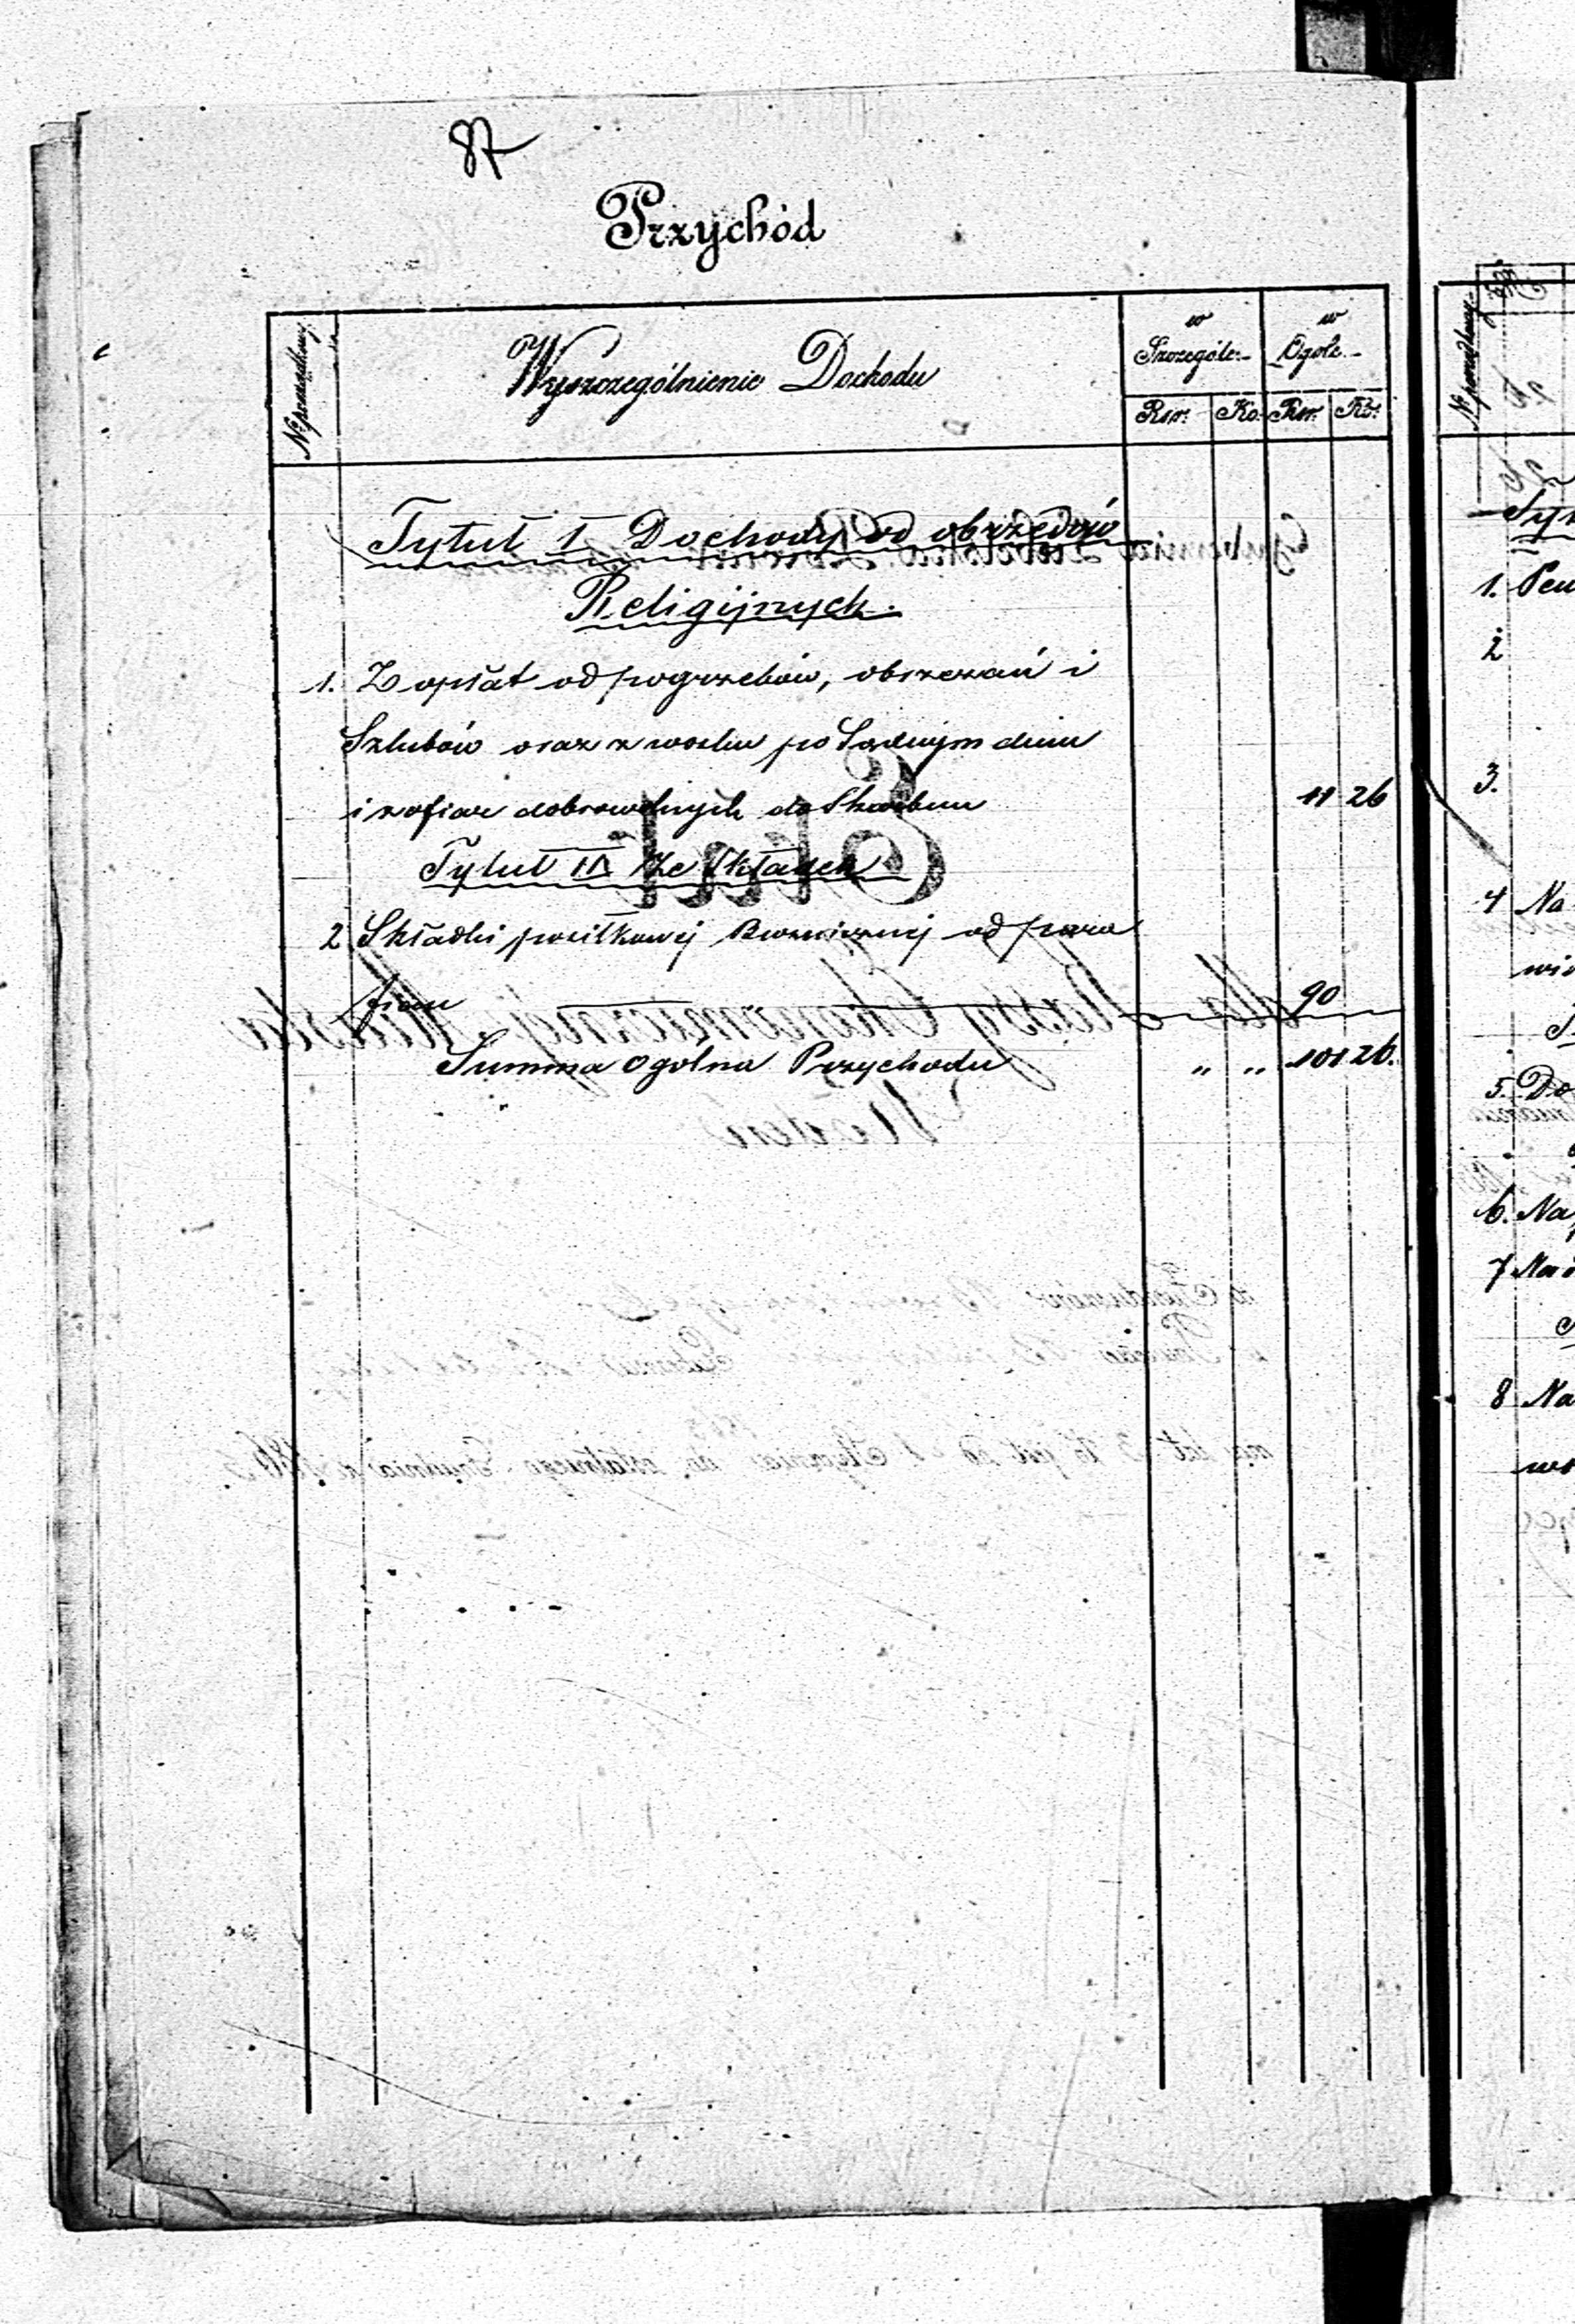 87
Przychód
№ porządkowy
Wyszczególnienie Dochodu
w Szczególe
w Ogóle
Rsr. Ko. Rsr. Ko.
Tytuł I Dochody od obrzędów
Religijnych.
1. Z opłat od pogrzebów, obrzezań i
Szlubów oraz z wosku po Sądnym dniu
i z ofiar dobrowolnych do Skarbun 11 26
Tytuł II Ze składek
2 Składki posiłkowej Bożnicznej od para
fian 90
Summa Ogólna Przychodu " " 101 26.
№ porządkowy
1. Pen
2
3.
4 Na
5. Do
6. Na
7 Na
8 Na